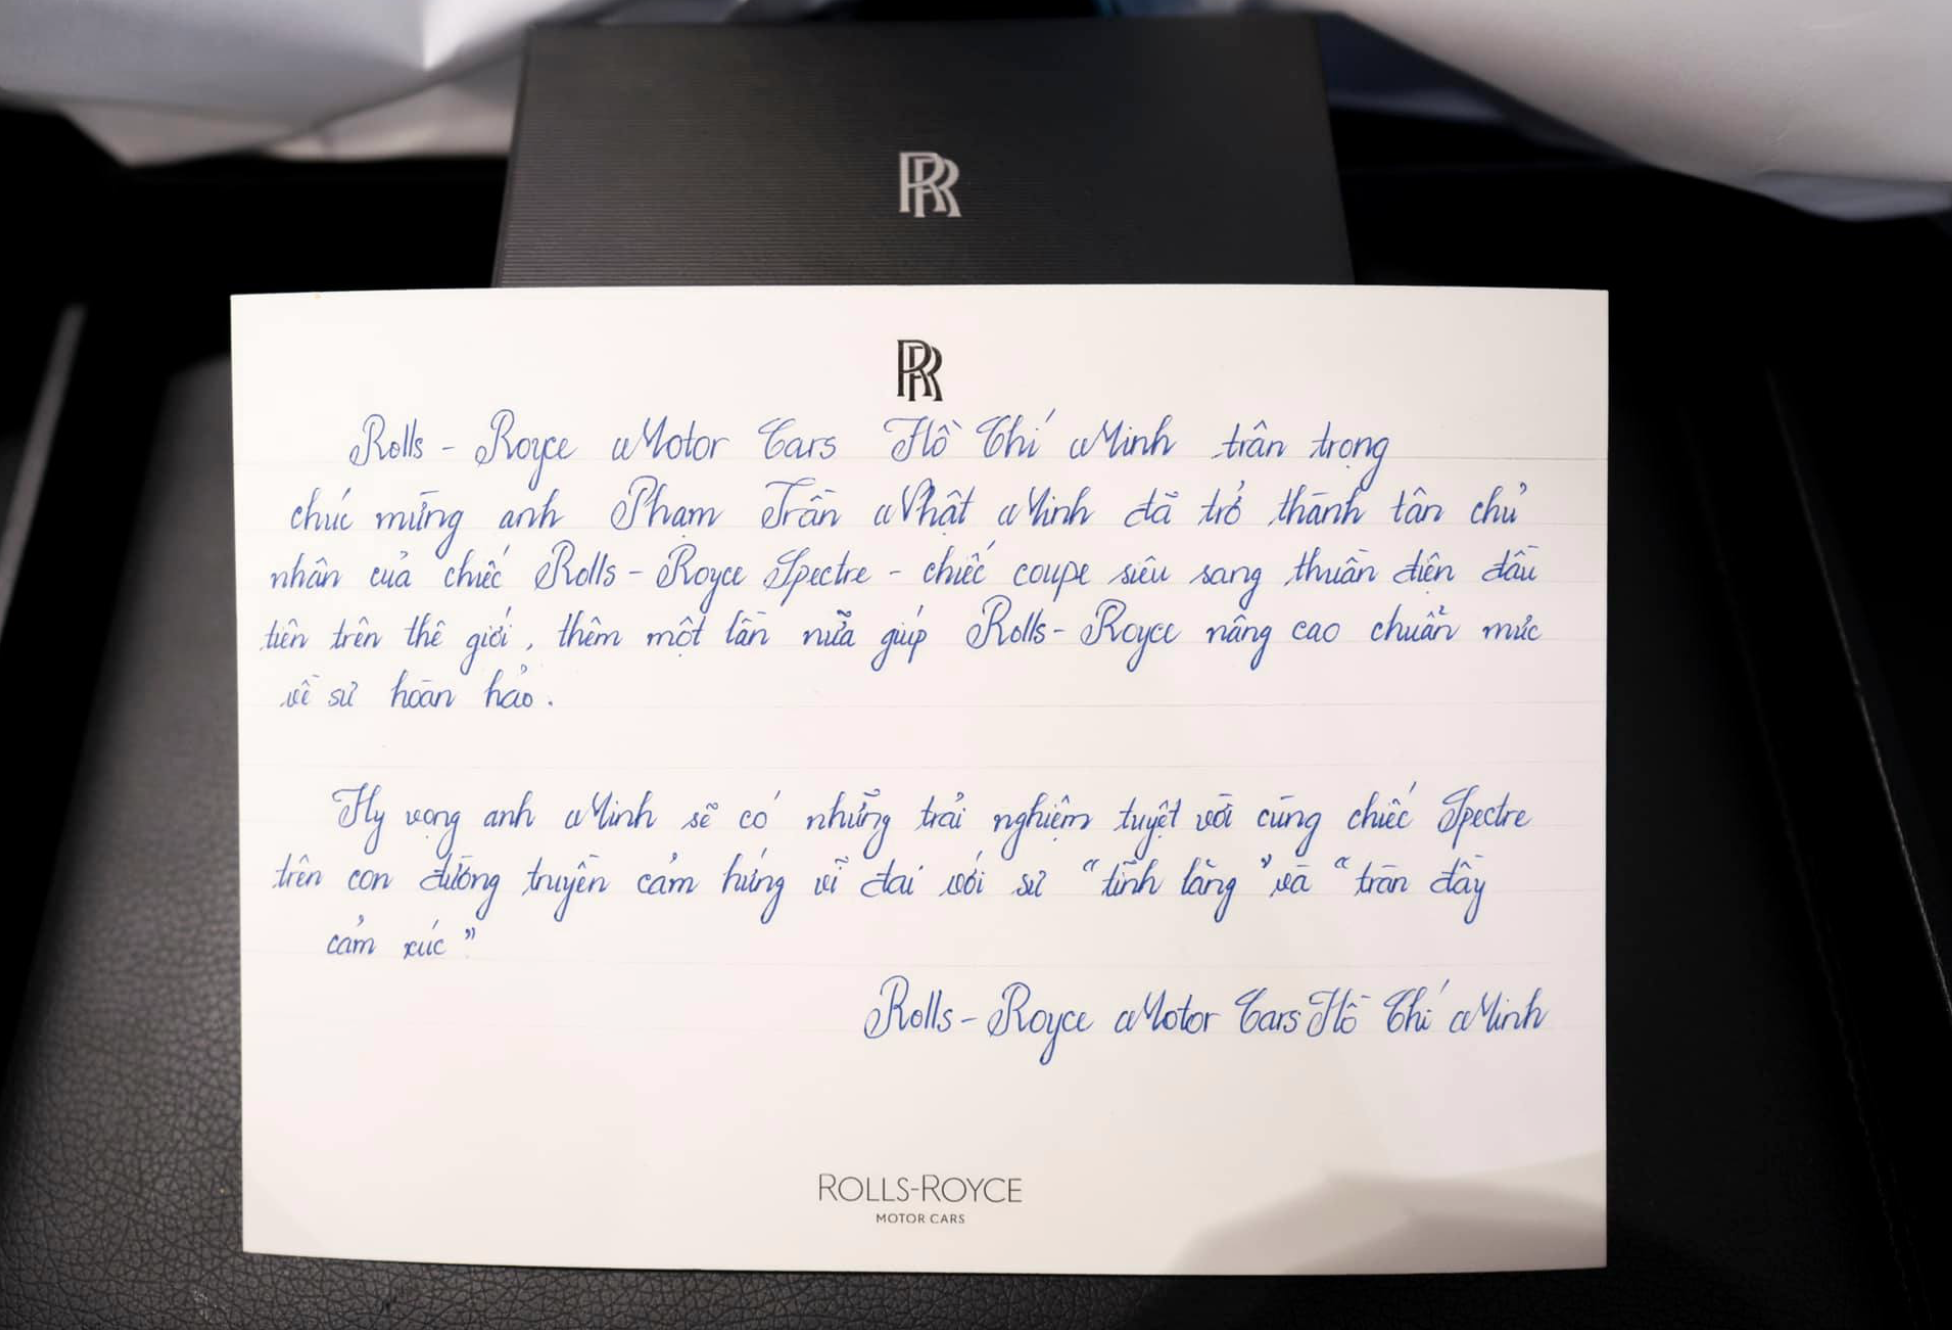 RR
RR
Rolls - Royce Motor Cars Hồ Chí Minh trân trọng
chúc mừng anh Phạm Trần Nhật Minh đã trở thành tân chủ
nhân của chiếc Rolls - Royce Spectre - chiếc coupe siêu sang thuần điện đầu
tiên trên thế giới, thêm một lần nữa giúp Rolls - Royce nâng cao chuẩn mực
về sự hoàn hảo.
Hy vọng anh Minh sẽ có những trải nghiệm tuyệt vời cùng chiếc Spectre
trên con đường truyền cảm hứng vĩ đại với sự "tĩnh lặng" và "tràn đầy
cảm xúc"
Rolls - Royce Motor Cars Hồ Chí Minh
ROLLS-ROYCE
MOTOR CARS